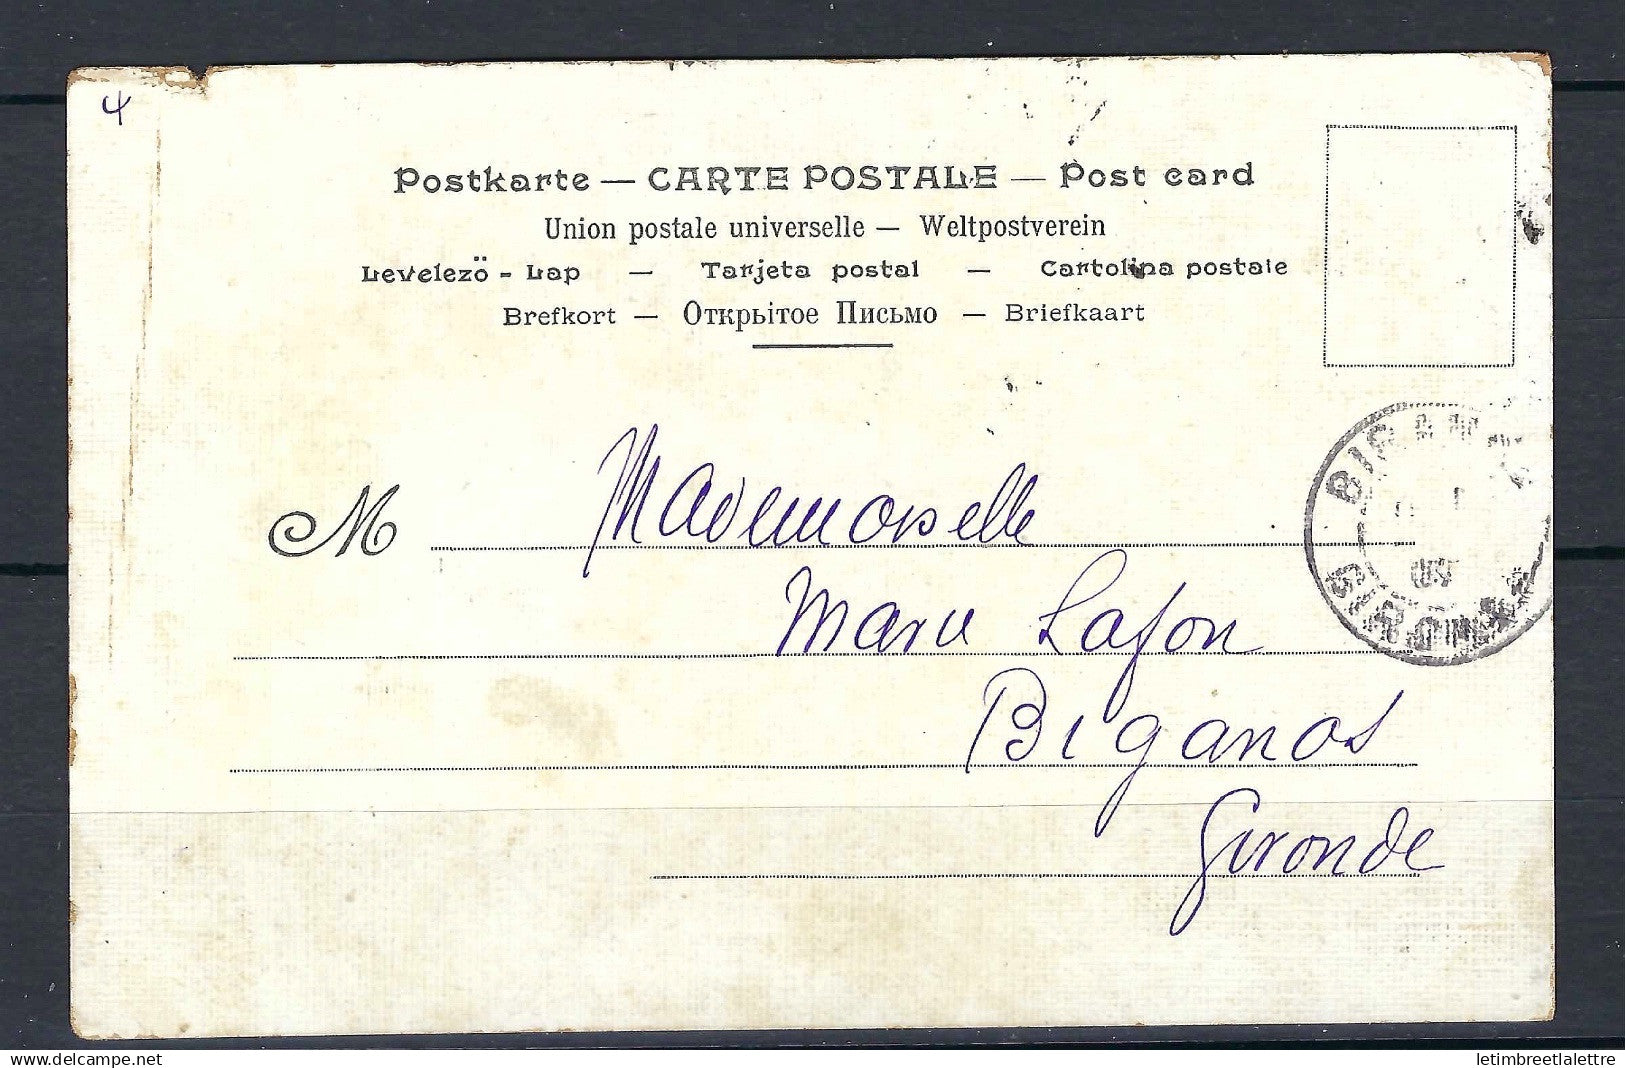 4
Postkarte — CARTE POSTALE — Post card
Union postale universelle — Weltpostverein
Levelező - Lap — Tarjeta postal — Cartolina postale
Brefkort — Открьiтое Письмо — Briefkaart
M Mademoiselle
Marie Lafon
Biganos
Gironde
delcampe.net
letimbreetlalettre